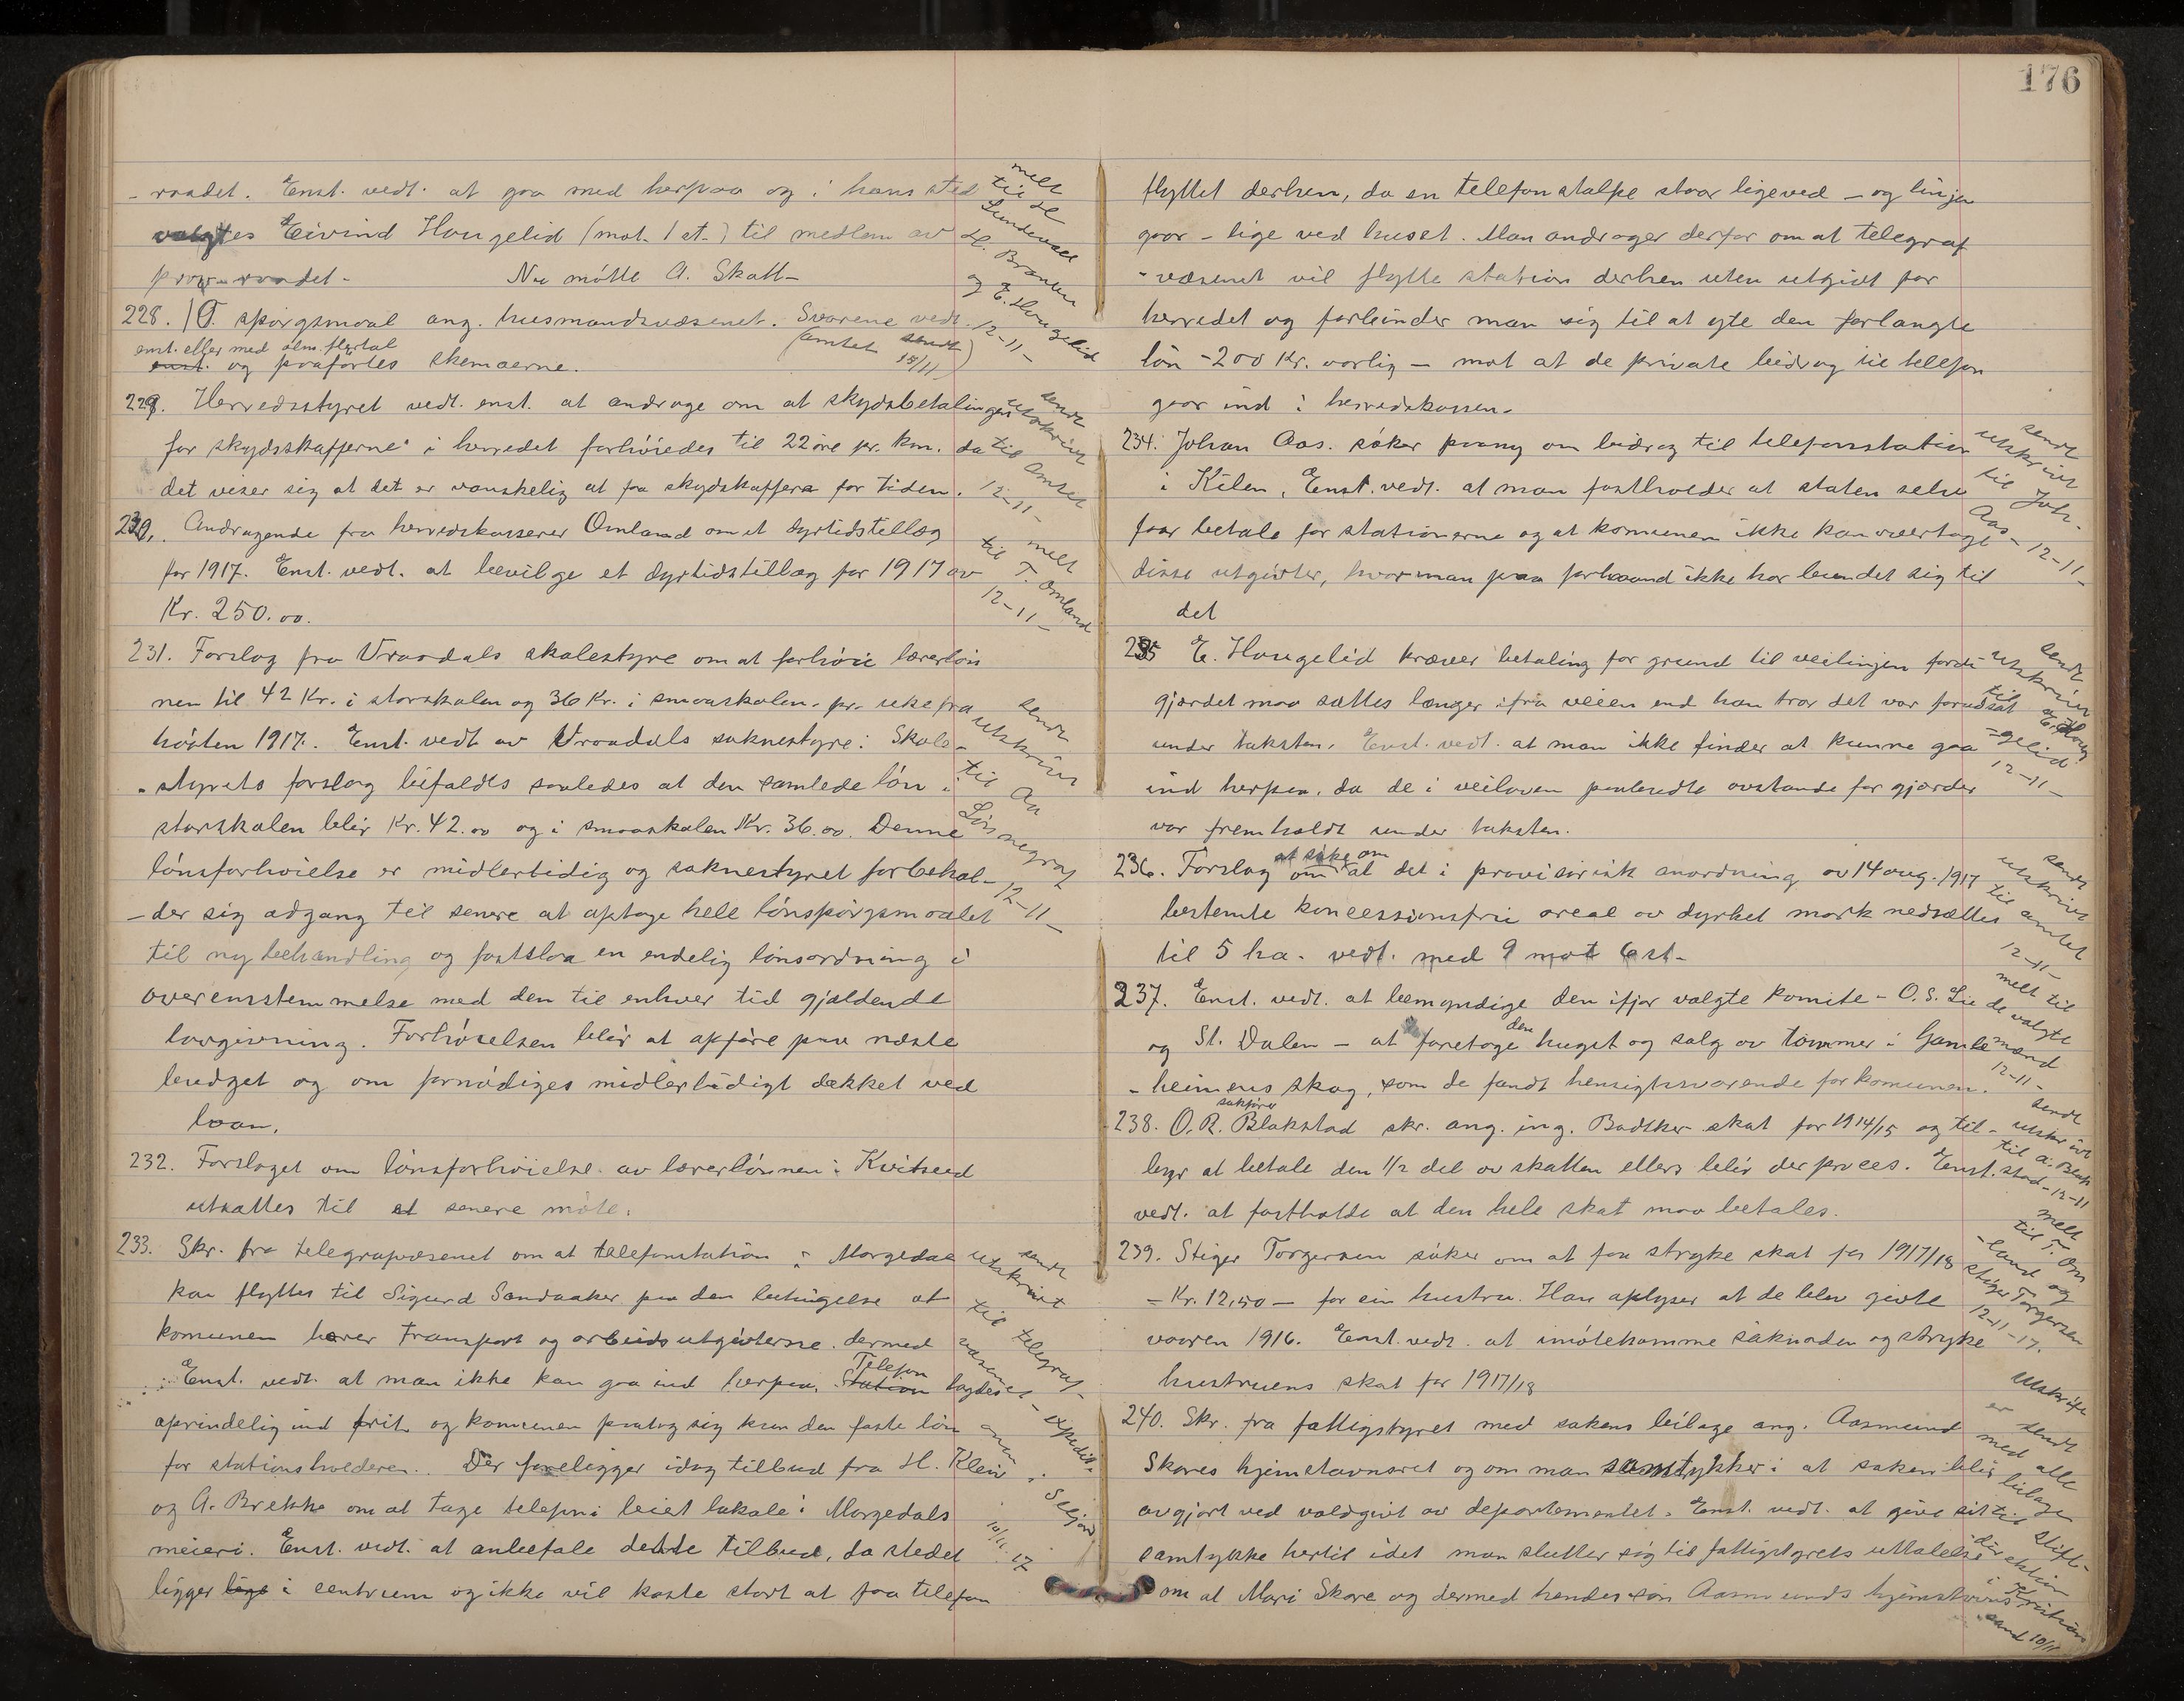 176
- raadet. Enst. vedt. at gaa med herpaa og i hans sted
valgtes Eivind Hougelid (mot 1 st.) til medlem av
prov. raadet - Nu møtte A. Skatt -
melt til H. Lundevall H. Bromten og E. Hougelid 12-11-
228. spørgsmaal ang. husmandsvæsenet. Svarene vedt.
enst. eller med alm. flertal (amtet sendt 18/11)
enst. og paaførtes skemaerne.
229. Herredsstyret vedt. enst. at andrage om at skydsbetalingen
for skydsskafferne i herredet forhøiedes til 22 øre pr. km. da
det viser sig at det er vanskelig at faa skydskaffere for tiden.
sendt utskrivt til Amtet 12-11-
230. Andragende fra herredskasserer Omland om et dyrtidstillæg
for 1917. Enst. vedt. at bevilge et dyrtidstillæg for 1917 av
Kr. 250.00.
melt til T. Omland 12-11-
231. Forslag fra Vraadals skolestyre om at forhøie lærerløn
nen til 42 Kr. i storskolen og 36 Kr. i smaaskolen. pr. uke fra
høsten 1917. Enst. vedt av Vraadals soknestyre: Skole-
- styrets forslag bifaldts saaledes at den samlede løn i
storskolen blir Kr. 42.00 og i smaaskolen Kr. 36.00. Denne
lønsforhøielse er midlertidig og soknestyret forbehol-
- der sig adgang til senere at optage hele lønsspørgsmaalet
til ny behandling og fastslaa en endelig lønsordning i
overensstemmelse med den til enhver tid gjældende
lovgivning. Forhøielsen blir at opføre paa næste
budget og om fornødiges midlertidigt dækket ved
laan.
sendt utskrivt til Aa Lønnegrav 12-11-
232. Forslaget om lønsforhøielse av lærerlønnen i Kviteseid
utsattes til et senere møte.
233. Skr. fra telegrafvæsenet om at telefonstation i Morgedal
kan flyttes til Sigurd Sandaaker paa den betingelse at
komunen bærer transport og arbeidsutgivterne. dermed
Enst. vedt. at man ikke kan gaa ind herpaa. Station Telefon lagdes
oprindelig ind frit og komunen paatog sig kun den faste løn
for stationsholderen. Der foreligger idag tilbud fra H. Kleiv
og A. Brekke om at tage telefon i leiet lokale i Morgedals
meieri. Enst. vedt. at anbefale dette tilbud, da stedet
ligger lige i centrum og ikke vil koste stort at faa telefon
sendt utskrivt til telegraf-væsen - i Seljord 10/11 17
flyttet derhen, da en telefonstolpe staar ligeved - og linjen
gaar - lige ved huset. Man andrager derfor om at telegraf
- væsenet vil flytte station derhen uten utgivt for
herredet og forbinder man sig til at yte den forlangte
løn - 200 Kr. aarlig - mot at de private bidrag til telefon
gaar ind i herredskassen.
234. Johan Aas. søker paany om bidrag til telefonstation
i Kilen. Enst. vedt. at man fastholder at staten selv
faar betale for stationerne og at komunen ikke kan overtage
disse utgivter, hvor man paa forhaand ikke har bundet sig til
det
sendt utskrivt til Joh. Aas - 12-11-
235 E. Hougelid kræver betaling for grund til veilinjen fordi
gjærdet maa sættes længer ifra veien end han tror det var forudsat
under taksten. Enst. vedt. at man ikke finder at kunne gaa
ind herpaa, da de i veiloven paabudte avstande for gjærder
var fremholdt under taksten.
sendt utskrivt til E. Houg-gelid 12-11-
236. Forslag om at søke om at det i provisorisk anordning av 14 aug. 1917
bestemte koncessionsfrie areal av dyrket mark nedsættes
til 5 ha. vedt. med 9 mot 6 st-
sendt utskrivt til amtet 12-11-
237. Enst. vedt. at bemyndige den ifjor valgte komite - O. S. Lie
og St. Dalen - at foretage den hugst og salg av tømmer i Gamle
- heimens skog, som de fandt hensigtssvarende for komunen.
melt til de valgte mænd 12-11-
238. O. R. sakfører Blakstad skr. ang. ing. Bødtker skat for 1914/15 og til-
byr at betale den 1/2 del av skatten ellers blir der proces. Enst.
vedt. at fastholde at den hele skat maa betales.
sendt utskrivt til a. Blakstad - 12-11
239. Stiger Torgersen søker om at faa stryke skat for 1917/18
- Kr. 12,50 - for sin hustru. Han oplyser at de blev givte
vaaren 1916. Enst. vedt. at imøtekomme søknaden og stryke
hustruens skat for 1917/18
melt til T. Om-land og stiger Torgersen 12-11-17.
240. Skr. fra fattigstyret med sakens bilage ang. Aasmund
Skores hjemstavnsret og om man samtykker i at saken blir
avgjort ved voldgivt av departementet. Enst. vedt. at give sit
samtykke hertil idet man slutter sig til fattigstyrets uttalelse
om at Mari Skore og dermed hendes søn Aasmunds hjemstavns
Utskrift er sendt med alle bilage til Stifts-direktion i Kristian-sand 10/11